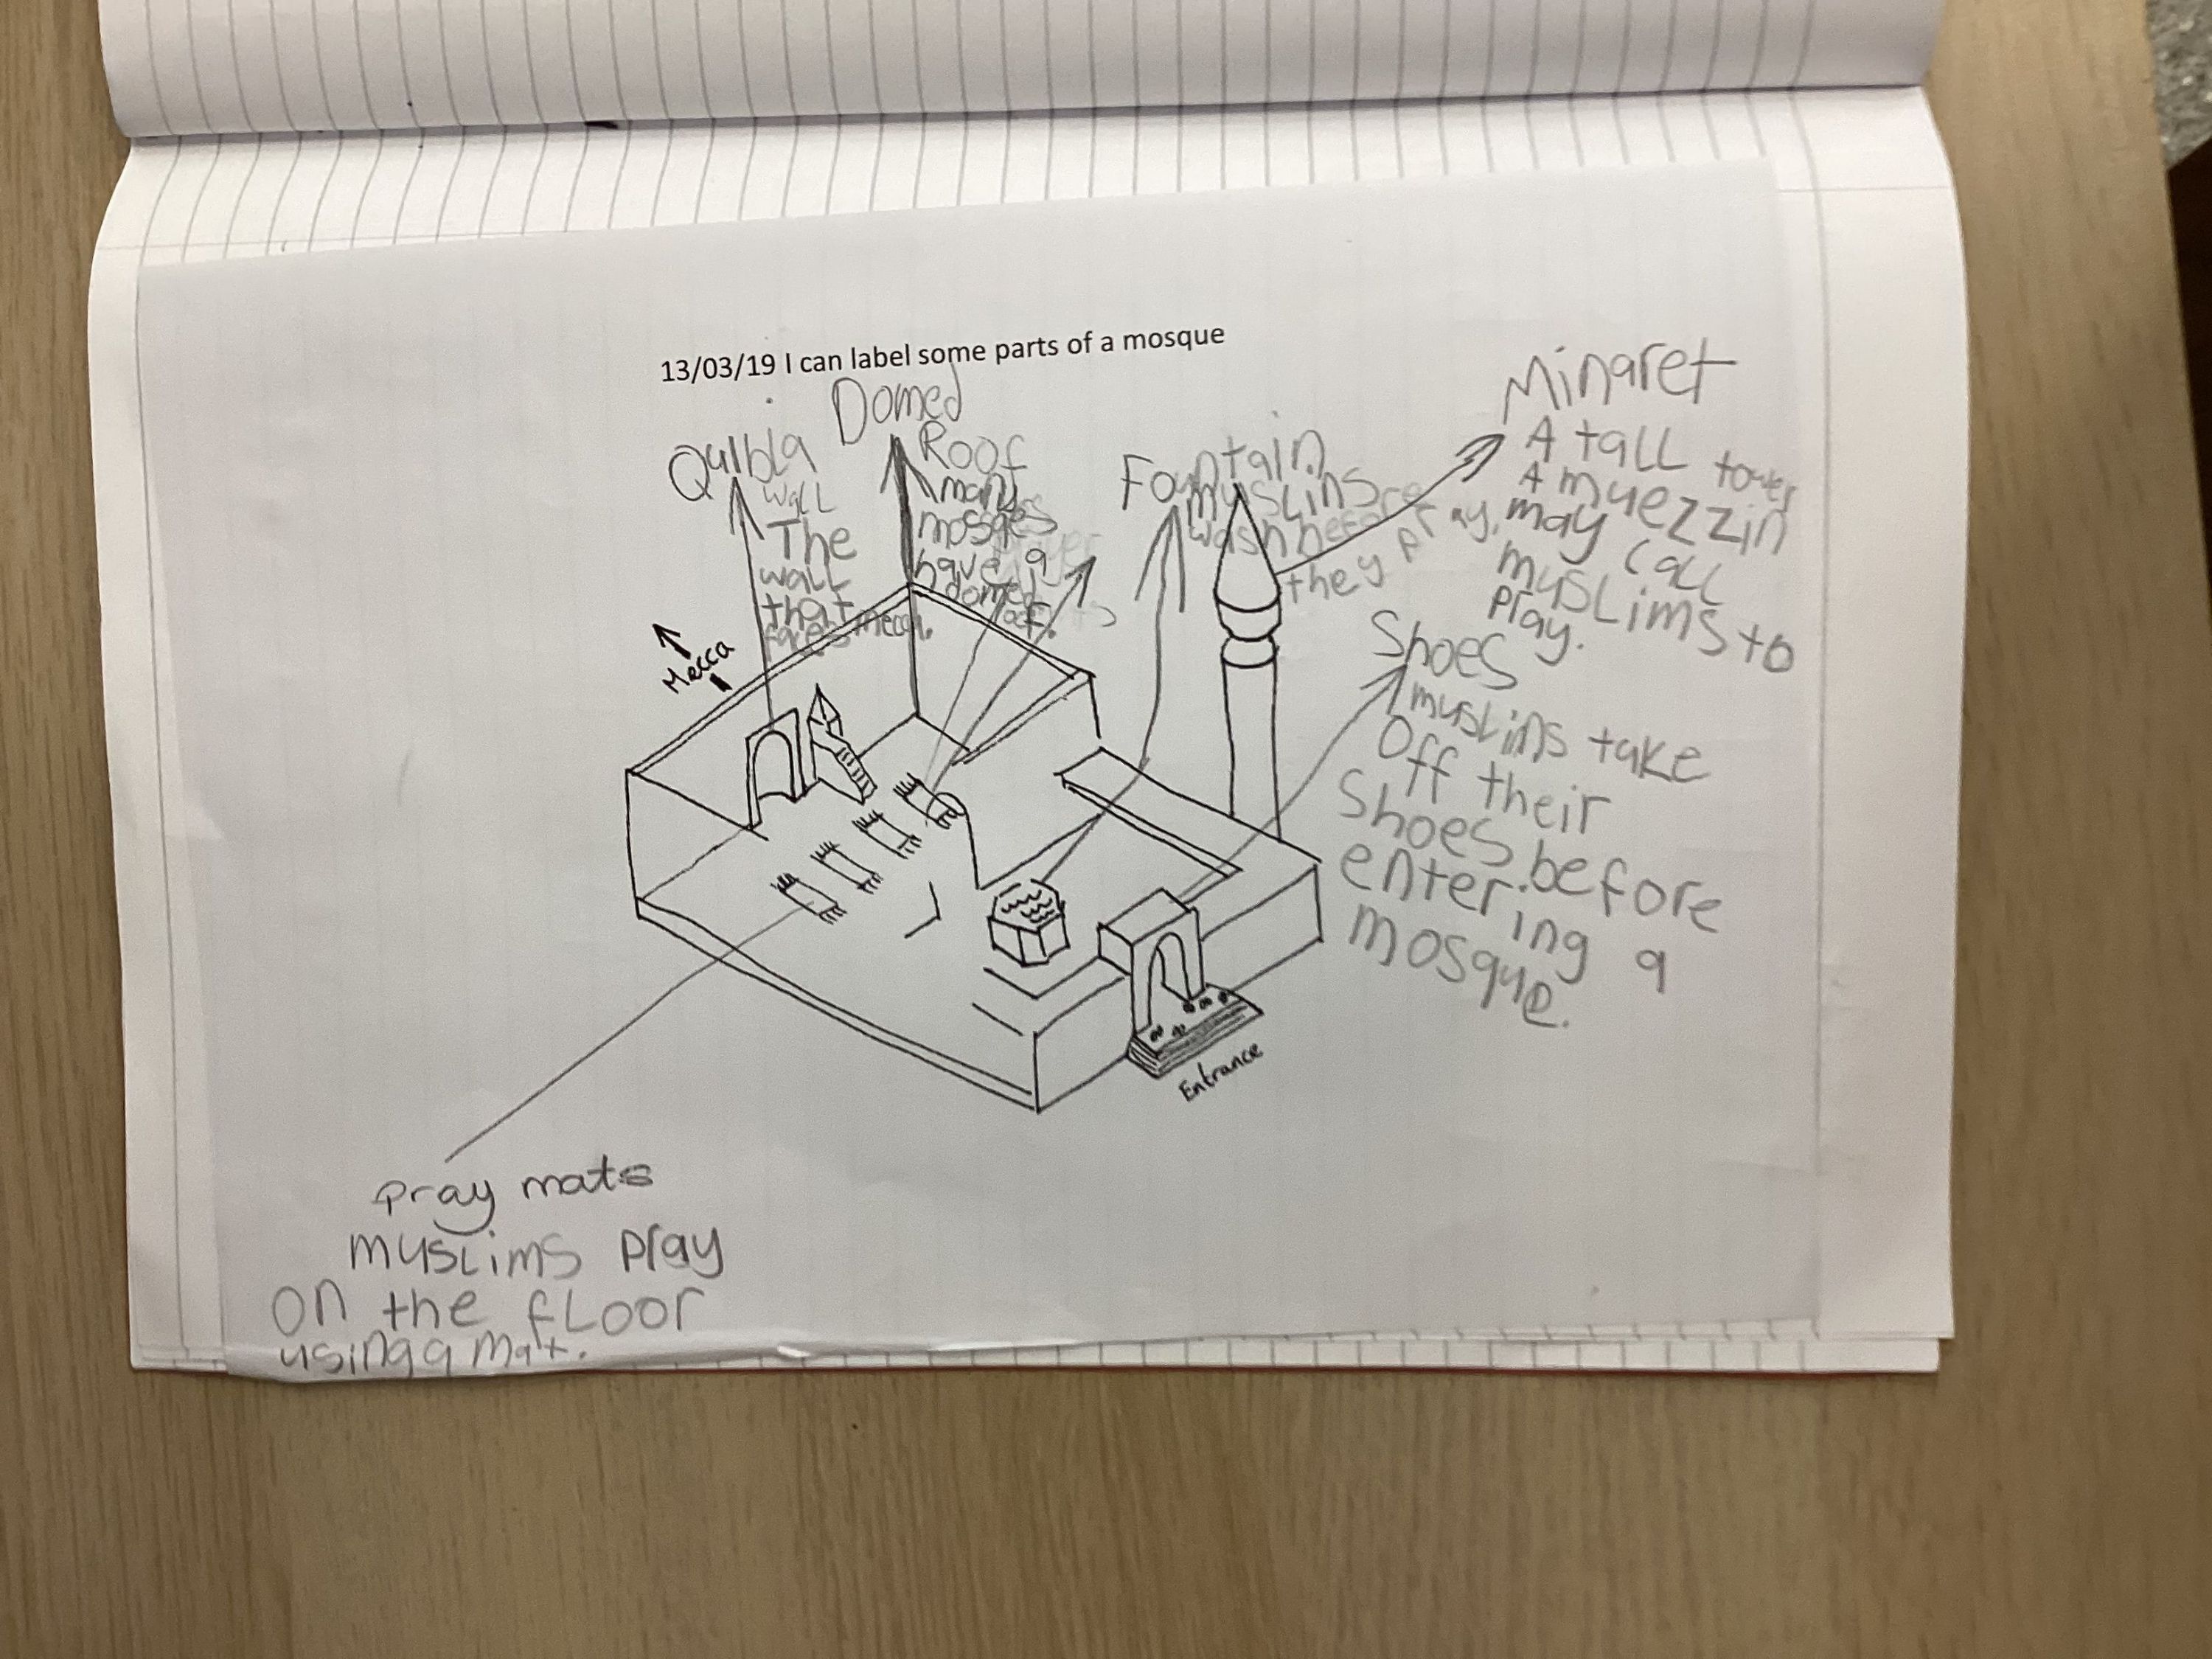 13/03/19 I can label some parts of a mosque
Quibla
wall
The
wall
that
faces mecca.
Domed
Roof
many
mosqes
have a
domed
roof.
Fountain
muslins
wash before
they pray.
Minaret
A tall tower
A muezzin
may call
muslims to
pray.
Shoes
muslims take
off their
shoes.before
entering a
mosque.
Mecca
Entrance
pray mats
muslims pray
on the floor
using a mat.